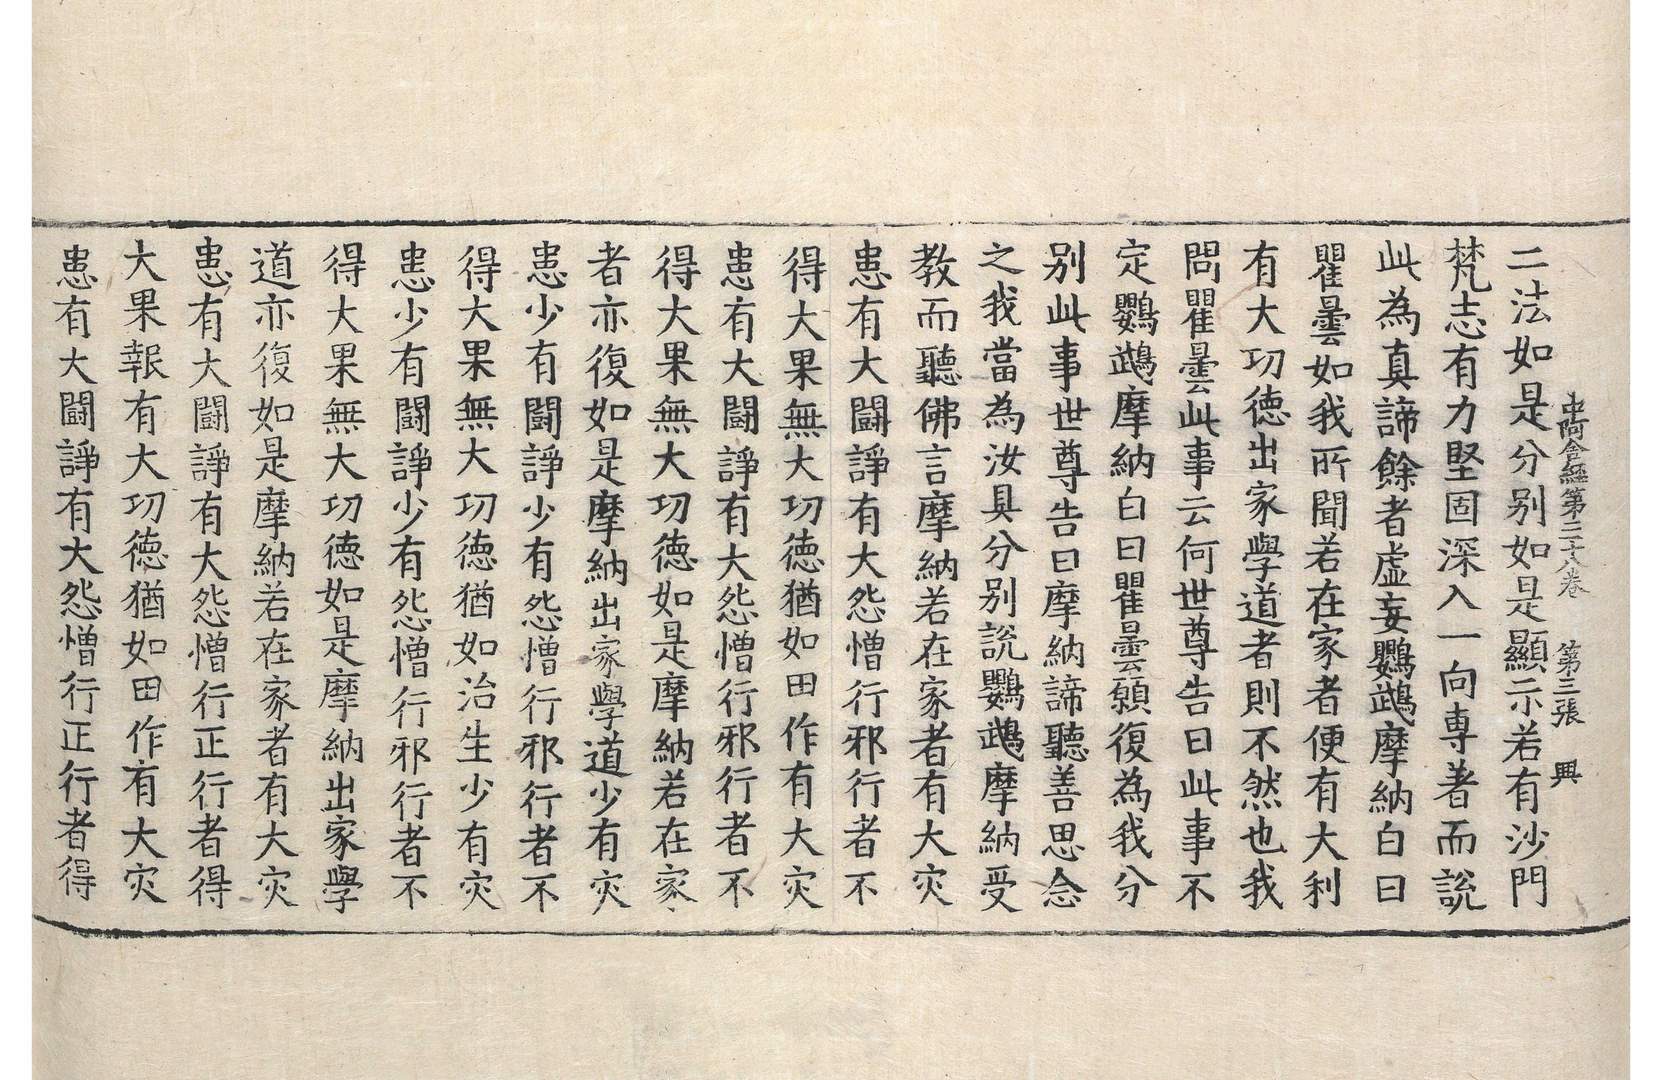 中阿含經第三十八卷 第三張 興
二法如是分别如是顯示若有沙門
梵志有力堅固深入一向専著而說
此為真諦餘者虛妄鸚鵡摩納白曰
瞿曇如我所聞若在家者便有大利
有大功徳出家學道者則不然也我
問瞿曇此事云何世尊告曰此事不
定鸚鵡摩納白曰瞿曇願復為我分
别此事世尊告曰摩納諦聽善思念
之我當為汝具分别說鸚鵡摩納受
教而聽佛言摩納若在家者有大灾
患有大闘諍有大怨憎行邪行者不
得大果無大功徳猶如田作有大灾
患有大闘諍有大怨憎行邪行者不
得大果無大功徳如是摩納若在家
者亦復如是摩納出家學道少有灾
患少有闘諍少有怨憎行邪行者不
得大果無大功徳猶如治生少有灾
患少有闘諍少有怨憎行邪行者不
得大果無大功徳如是摩納出家學
道亦復如是摩納若在家者有大灾
患有大闘諍有大怨憎行正行者得
大果報有大功徳猶如田作有大灾
患有大闘諍有大怨憎行正行者得